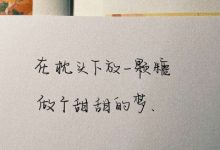 在枕头下放一颗糖
做个甜甜的梦、